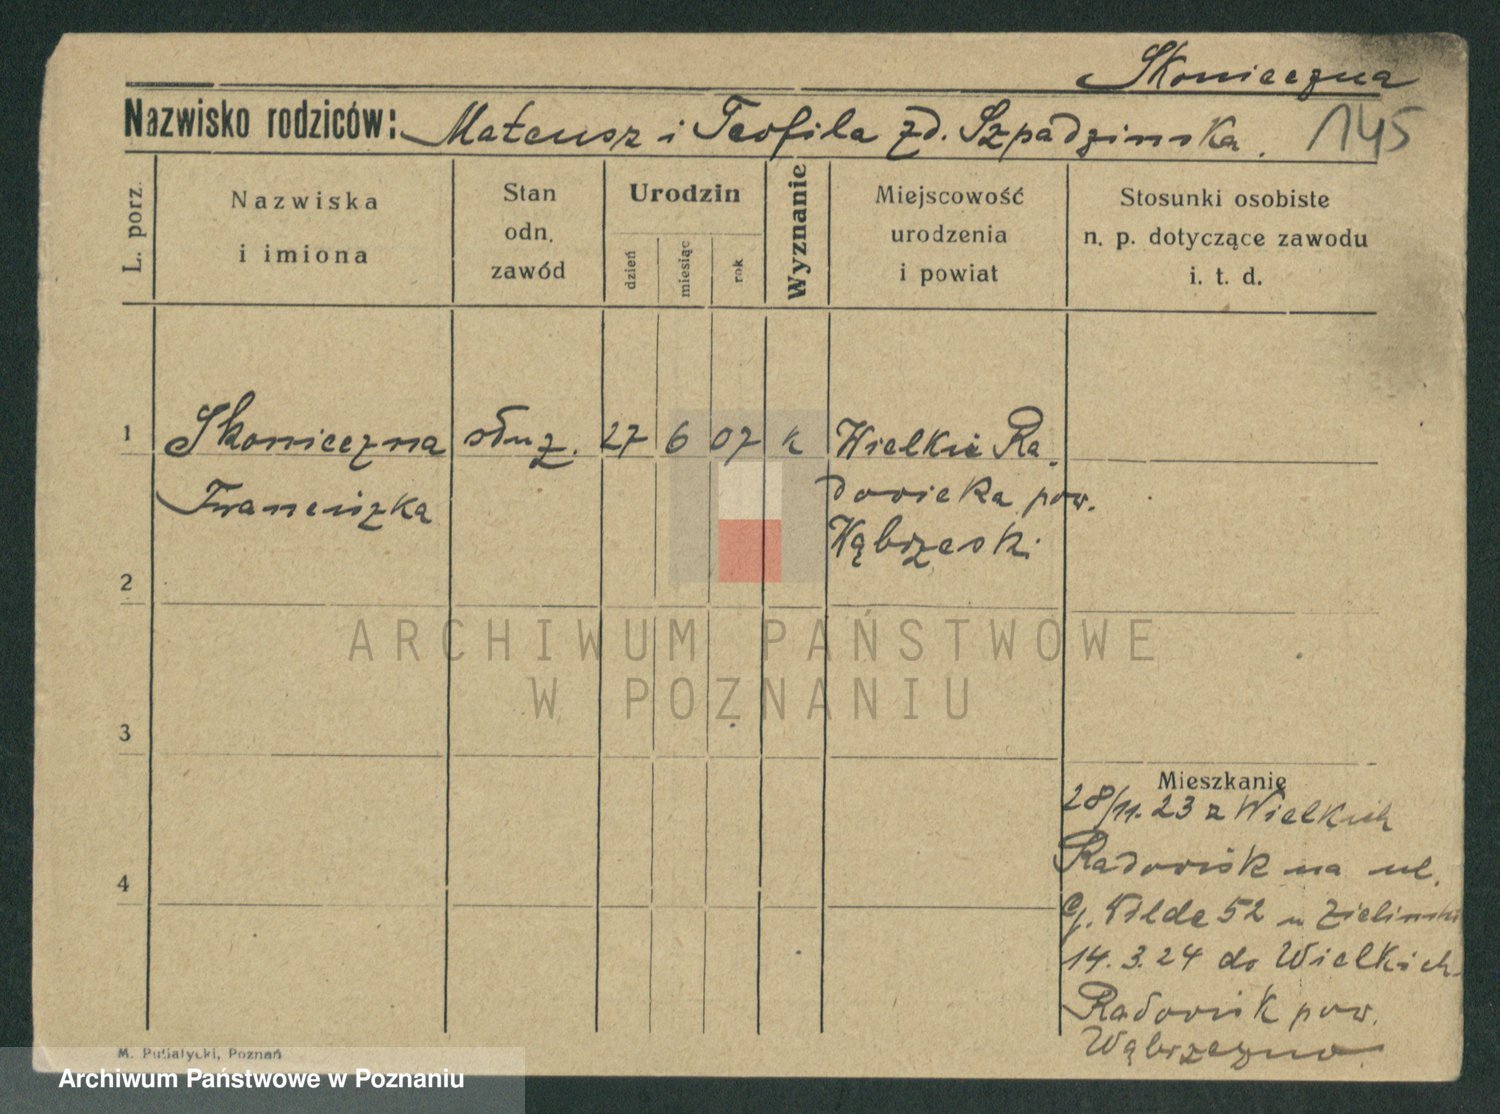 Skonieczna
Nazwisko rodziców: Mateusz i Teofila zd. Szpadzinska. 145
L. porz.
Nazwiska
i imiona
Stan
odn.
zawód
Urodzin
dzień
miesiąc
rok
Wyznanie
Miejscowość
urodzenia
i powiat
Stosunki osobiste
n. p. dotyczące zawodu
i. t. d.
1 Skonieczna służ. 27 6 07 k Wielkie Ra-
Franciszka dowiska pow.
Wąbrzeski
2
ARCHIWUM PAŃSTWOWE
W POZNANIU
3
4
Mieszkanie
28/11.23 z Wielkich
Radowisk na ul.
G. Wilda 52 u Zielinski
14.3.24 do Wielkich
Radowisk pow.
Wąbrzezno.
M. Putiatycki, Poznań
Archiwum Państwowe w Poznaniu